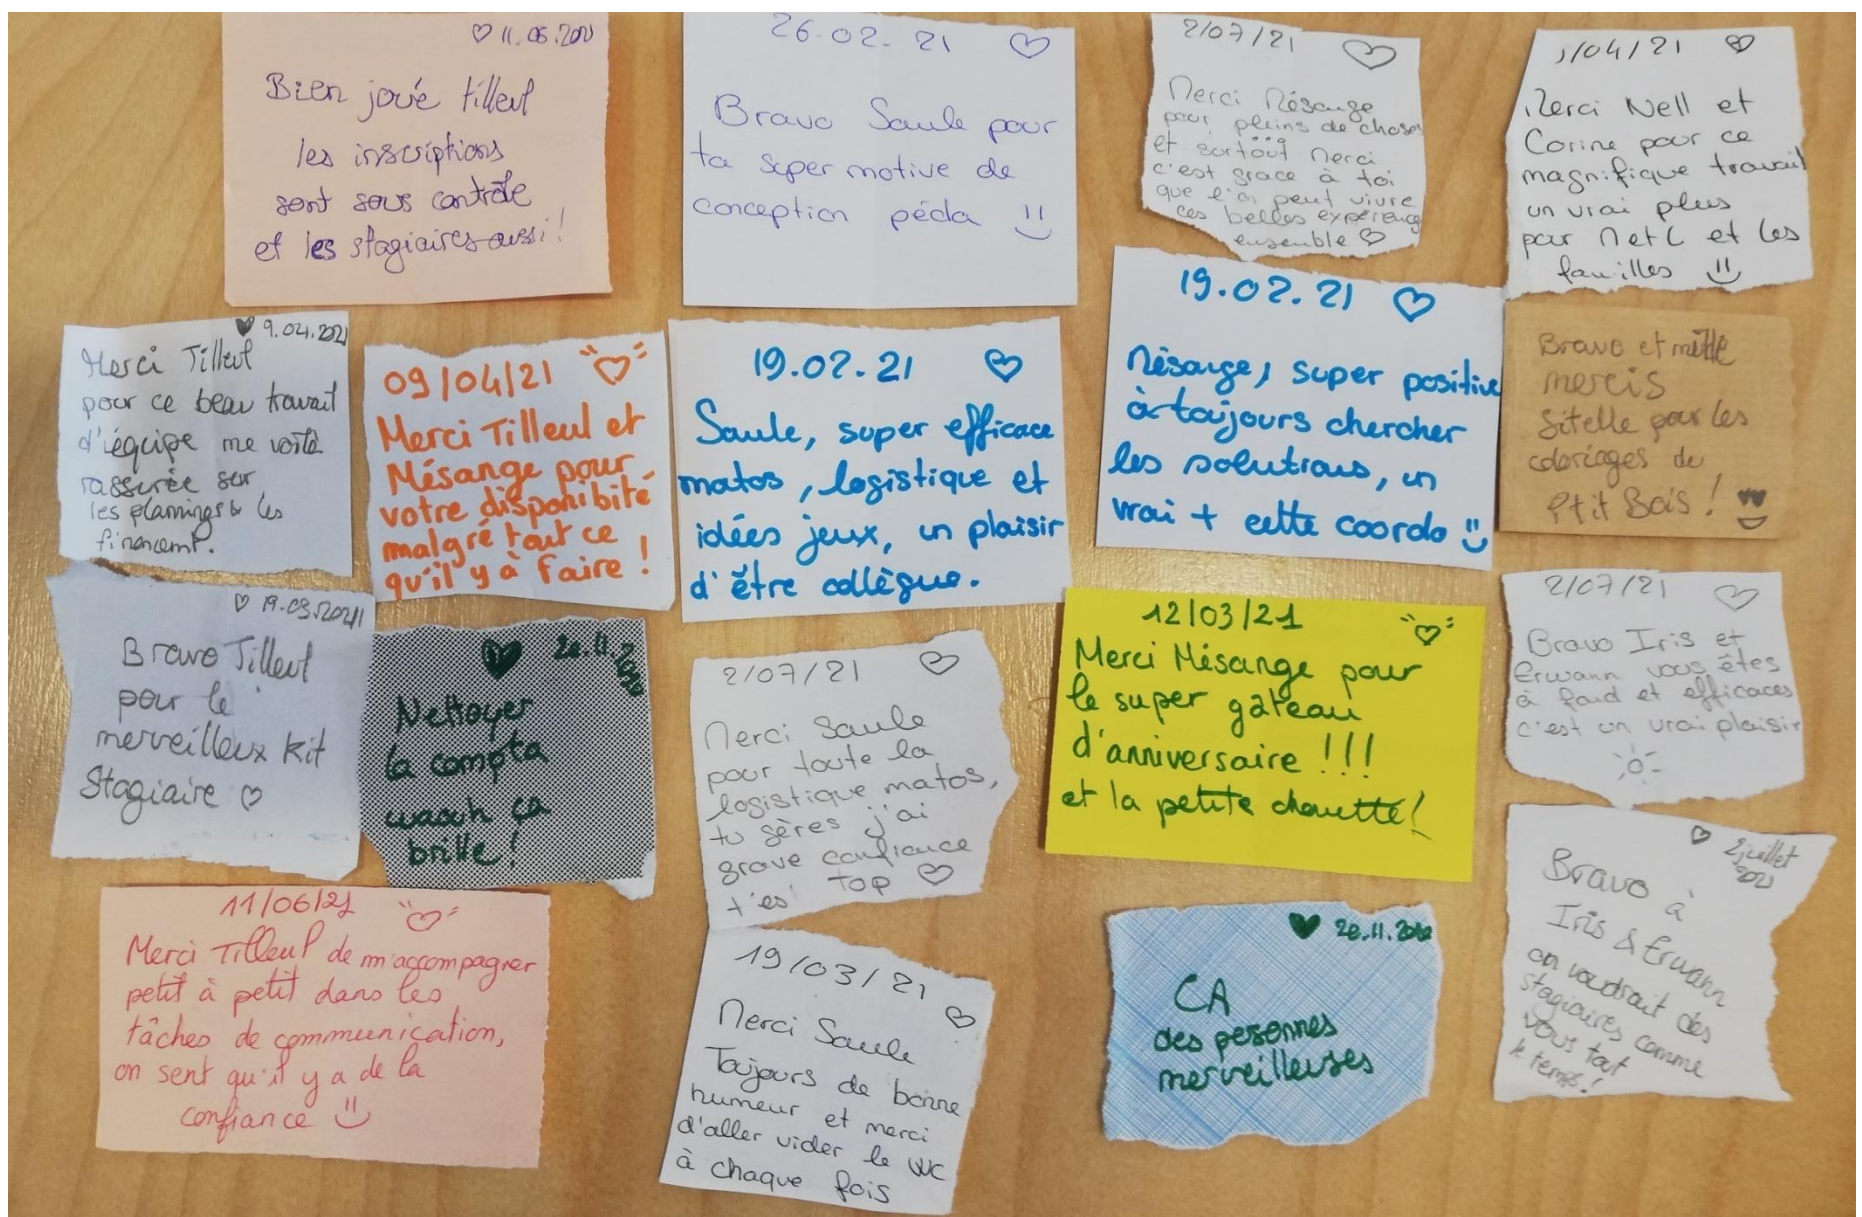 ♡ 11.06.2021
Bien joué tilleul
les inscriptions
sont sous contrôle
et les stagiaires aussi !
26.02.21 ♡
Bravo Saule pour
ta super motive de
conception péda
2/07/21 ♡
Merci Mésange
pour pleins de choses
et surtout merci
c'est grace à toi
que l'on peut vivre
ces belles expérience
ensemble ♡
/04/21 ♡
Merci Nell et
Corine pour ce
magnifique travail
un vrai plus
pour NetL et les
familles
♥ 9.04.2021
Merci Tilleul
pour ce beau travail
d'équipe me voilà
rassurée sur
les plannings & les
financemt.
09/04/21 ♡
Merci Tilleul et
Mésange pour
votre disponibité
malgré tout ce
qu'il y à faire !
19.02.21 ♡
Saule, super efficace
matos, logistique et
idées jeux, un plaisir
d'être collègue.
19.02.21 ♡
Mésange, super positive
à toujours chercher
les solutions, un
vrai + cette coordo
Bravo et mille
mercis
Sitelle pour les
coloriages de
Ptit Bois !
♡ 19.03.2021
Bravo Tilleul
pour le
merveilleux kit
Stagiaire ♡
♥ 20.11.2020
Nettoyer
la compta
waouh ça
brille !
2/07/21 ♡
Merci Saule
pour toute la
logistique matos,
tu gères j'ai
grave confiance
t'es TOP ♡
12/03/21 ♡
Merci Mésange pour
le super gâteau
d'anniversaire !!!
et la petite chouette !
2/07/21 ♡
Bravo Iris et
Erwann vous êtes
à fond et efficaces
c'est un vrai plaisir
11/06/21 ♡
Merci Tilleul de m'accompagner
petit à petit dans les
tâches de communication,
on sent qu'il y a de la
confiance
19/03/21 ♡
Merci Saule
Toujours de bonne
humeur et merci
d'aller vider le WC
à chaque fois
♥ 20.11.2020
CA
des personnes
merveilleuses
♡ 2 juillet
2021
Bravo à
Iris & Erwann
on voudrait des
stagiaires comme
vous tout
le temps !